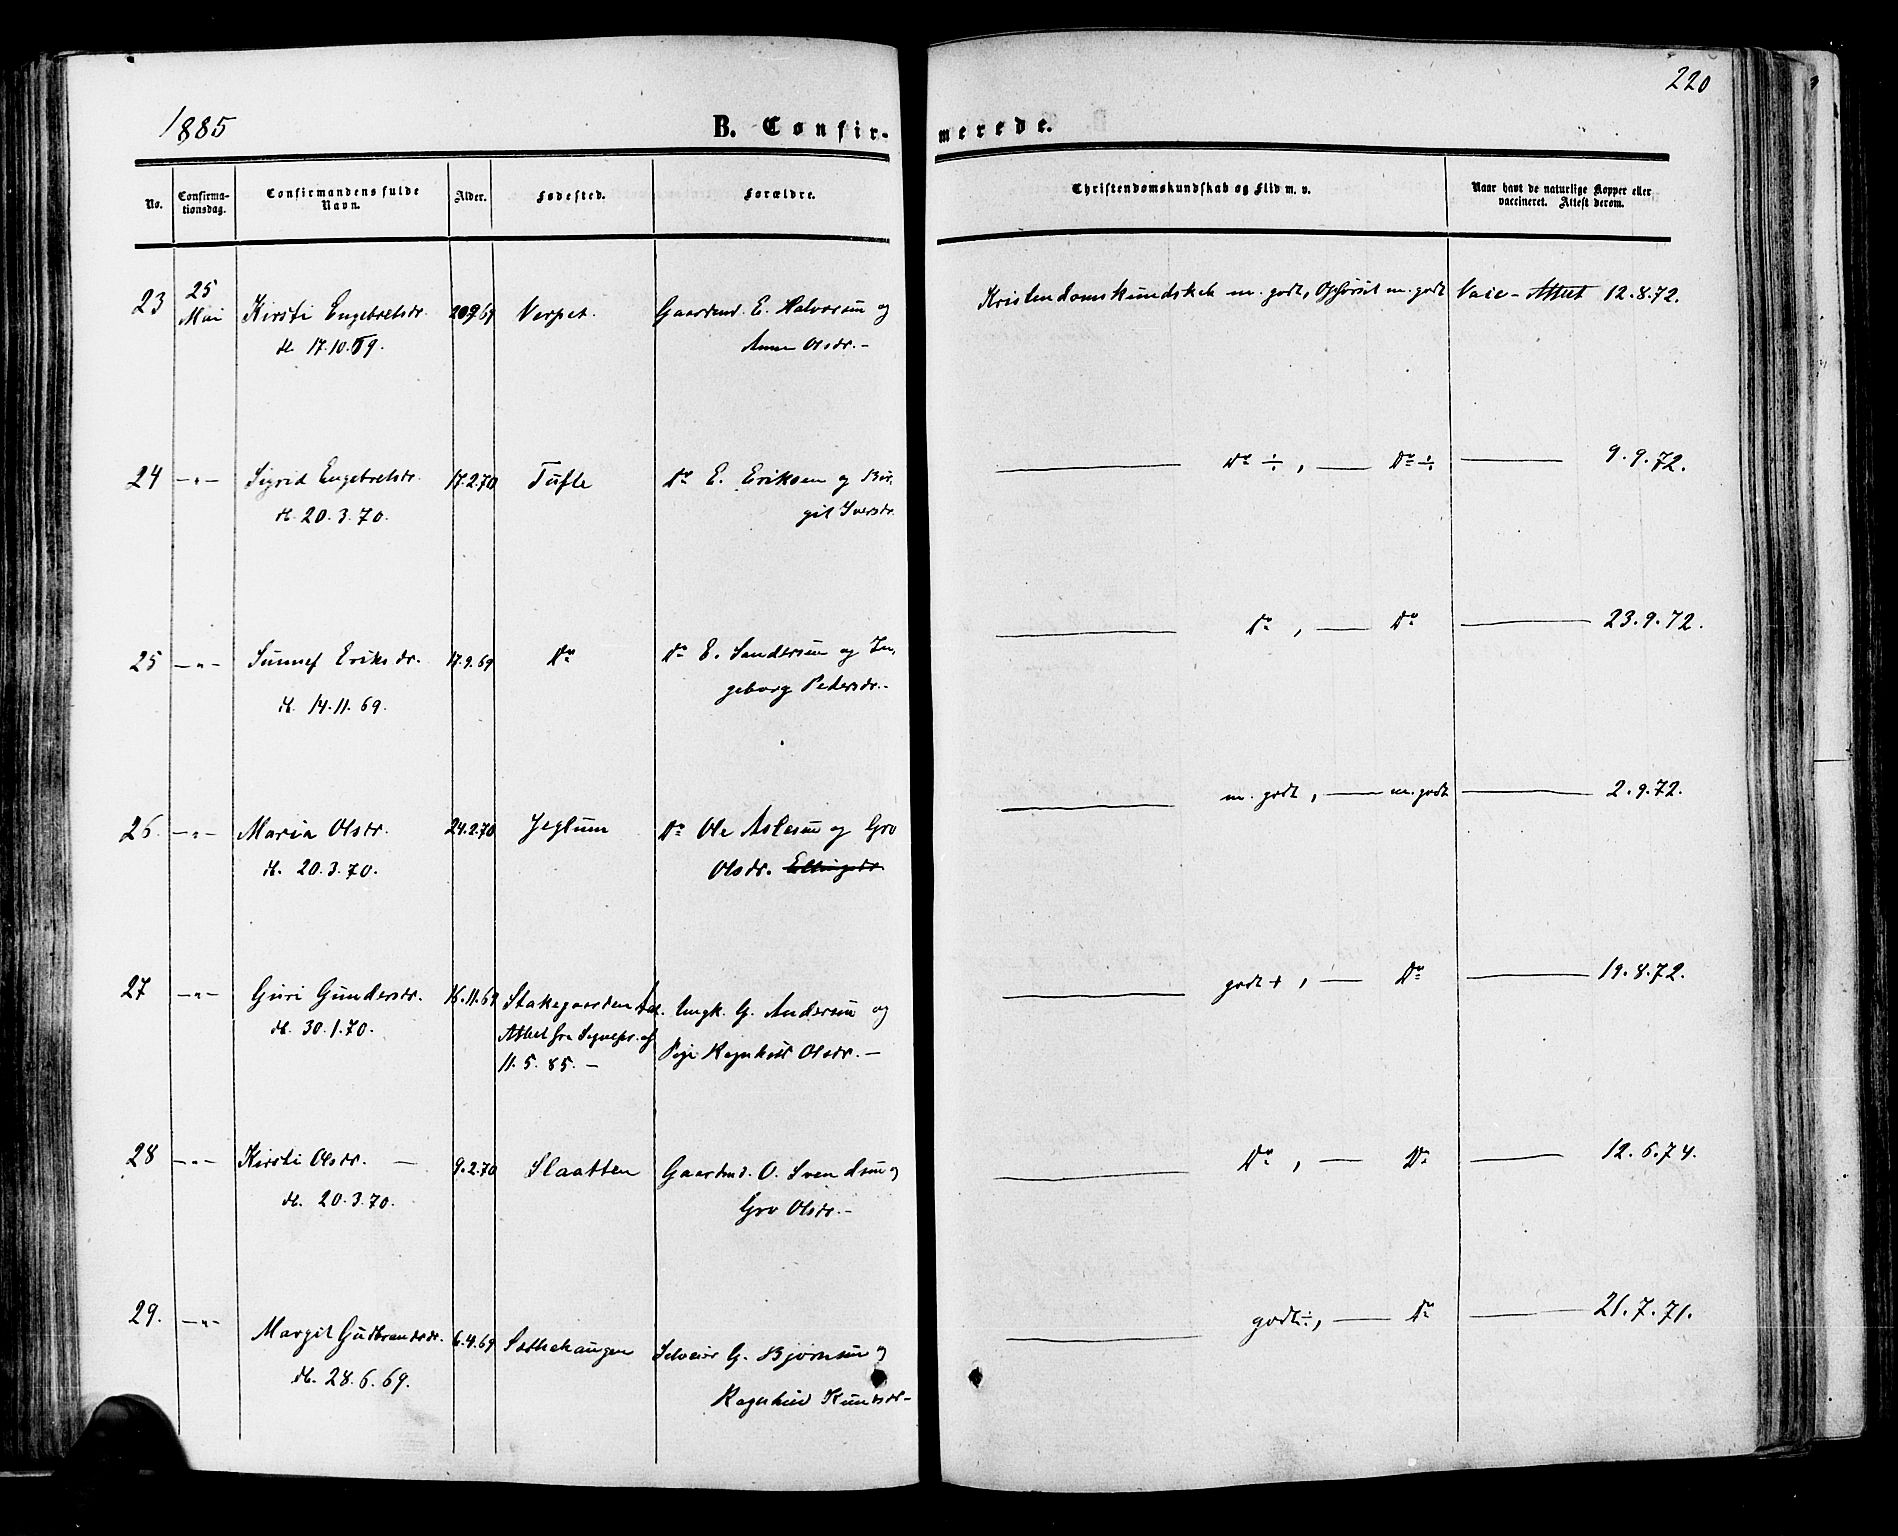 220
1885
B. Confir-
merede.
No.
Confirma-
tionsdag.
Confirmandens fulde
Navn.
Alder.
Fødested.
Forældre.
Christendomskundskab og Flid m. v.
Naar havt de naturlige Kopper eller
vaccineret. Attest derom.
23 25 Mai Kirsti Engebretsdr. Verpet. Gaardmd. E. Halvorsen og Kristendomskundskab m. godt, Opførsel m. godt Vacc-Attest 12.8.72.
d. 17.10.69. Anne Olsdr. -
24 - " - Sigrid Engebretsdr. 17.2.70 Tufte Do E. Eriksen og Bir- Do ÷, Do ÷ 9.9.72.
d. 20.3.70. git Iversdr.
25 - " - Sunnef Eriksdr. 17.9.69 Do Do E. Sandersen og In- Do, Do 23.9.72.
d. 14.11.69. geborg Pedersdr. -
26 - " - Maria Olsdr. 24.2.70 Jeglum Do Ole Aslesen og Gro m. godt, m. godt 2.9.72.
d. 20.3.70. Olsdr. Ellingsdr.
27 - " - Guri Gundersdr. 16.11.69 Stakegaarden Aal. Ungk. G. Andersen og godt +, Do 19.8.72.
d. 30.1.70. Attest fra Sognepr. af Pige Ragnhild Olsdr. -
11.5.85. -
28 - " - Kirsti Olsdr. - 9.2.70 Slaatten Gaardmd. O. Svendsen og Do, Do 12.6.74.
d. 20.3.70. Gro Olsdr. -
29. - " - Margit Gudbrandsdr. 6.4.69 Sættehaugen Selveier G. Bjørnsen og godt ÷, Do 21.7.71.
d. 28.6.69. Ragnhild Knudsdr -